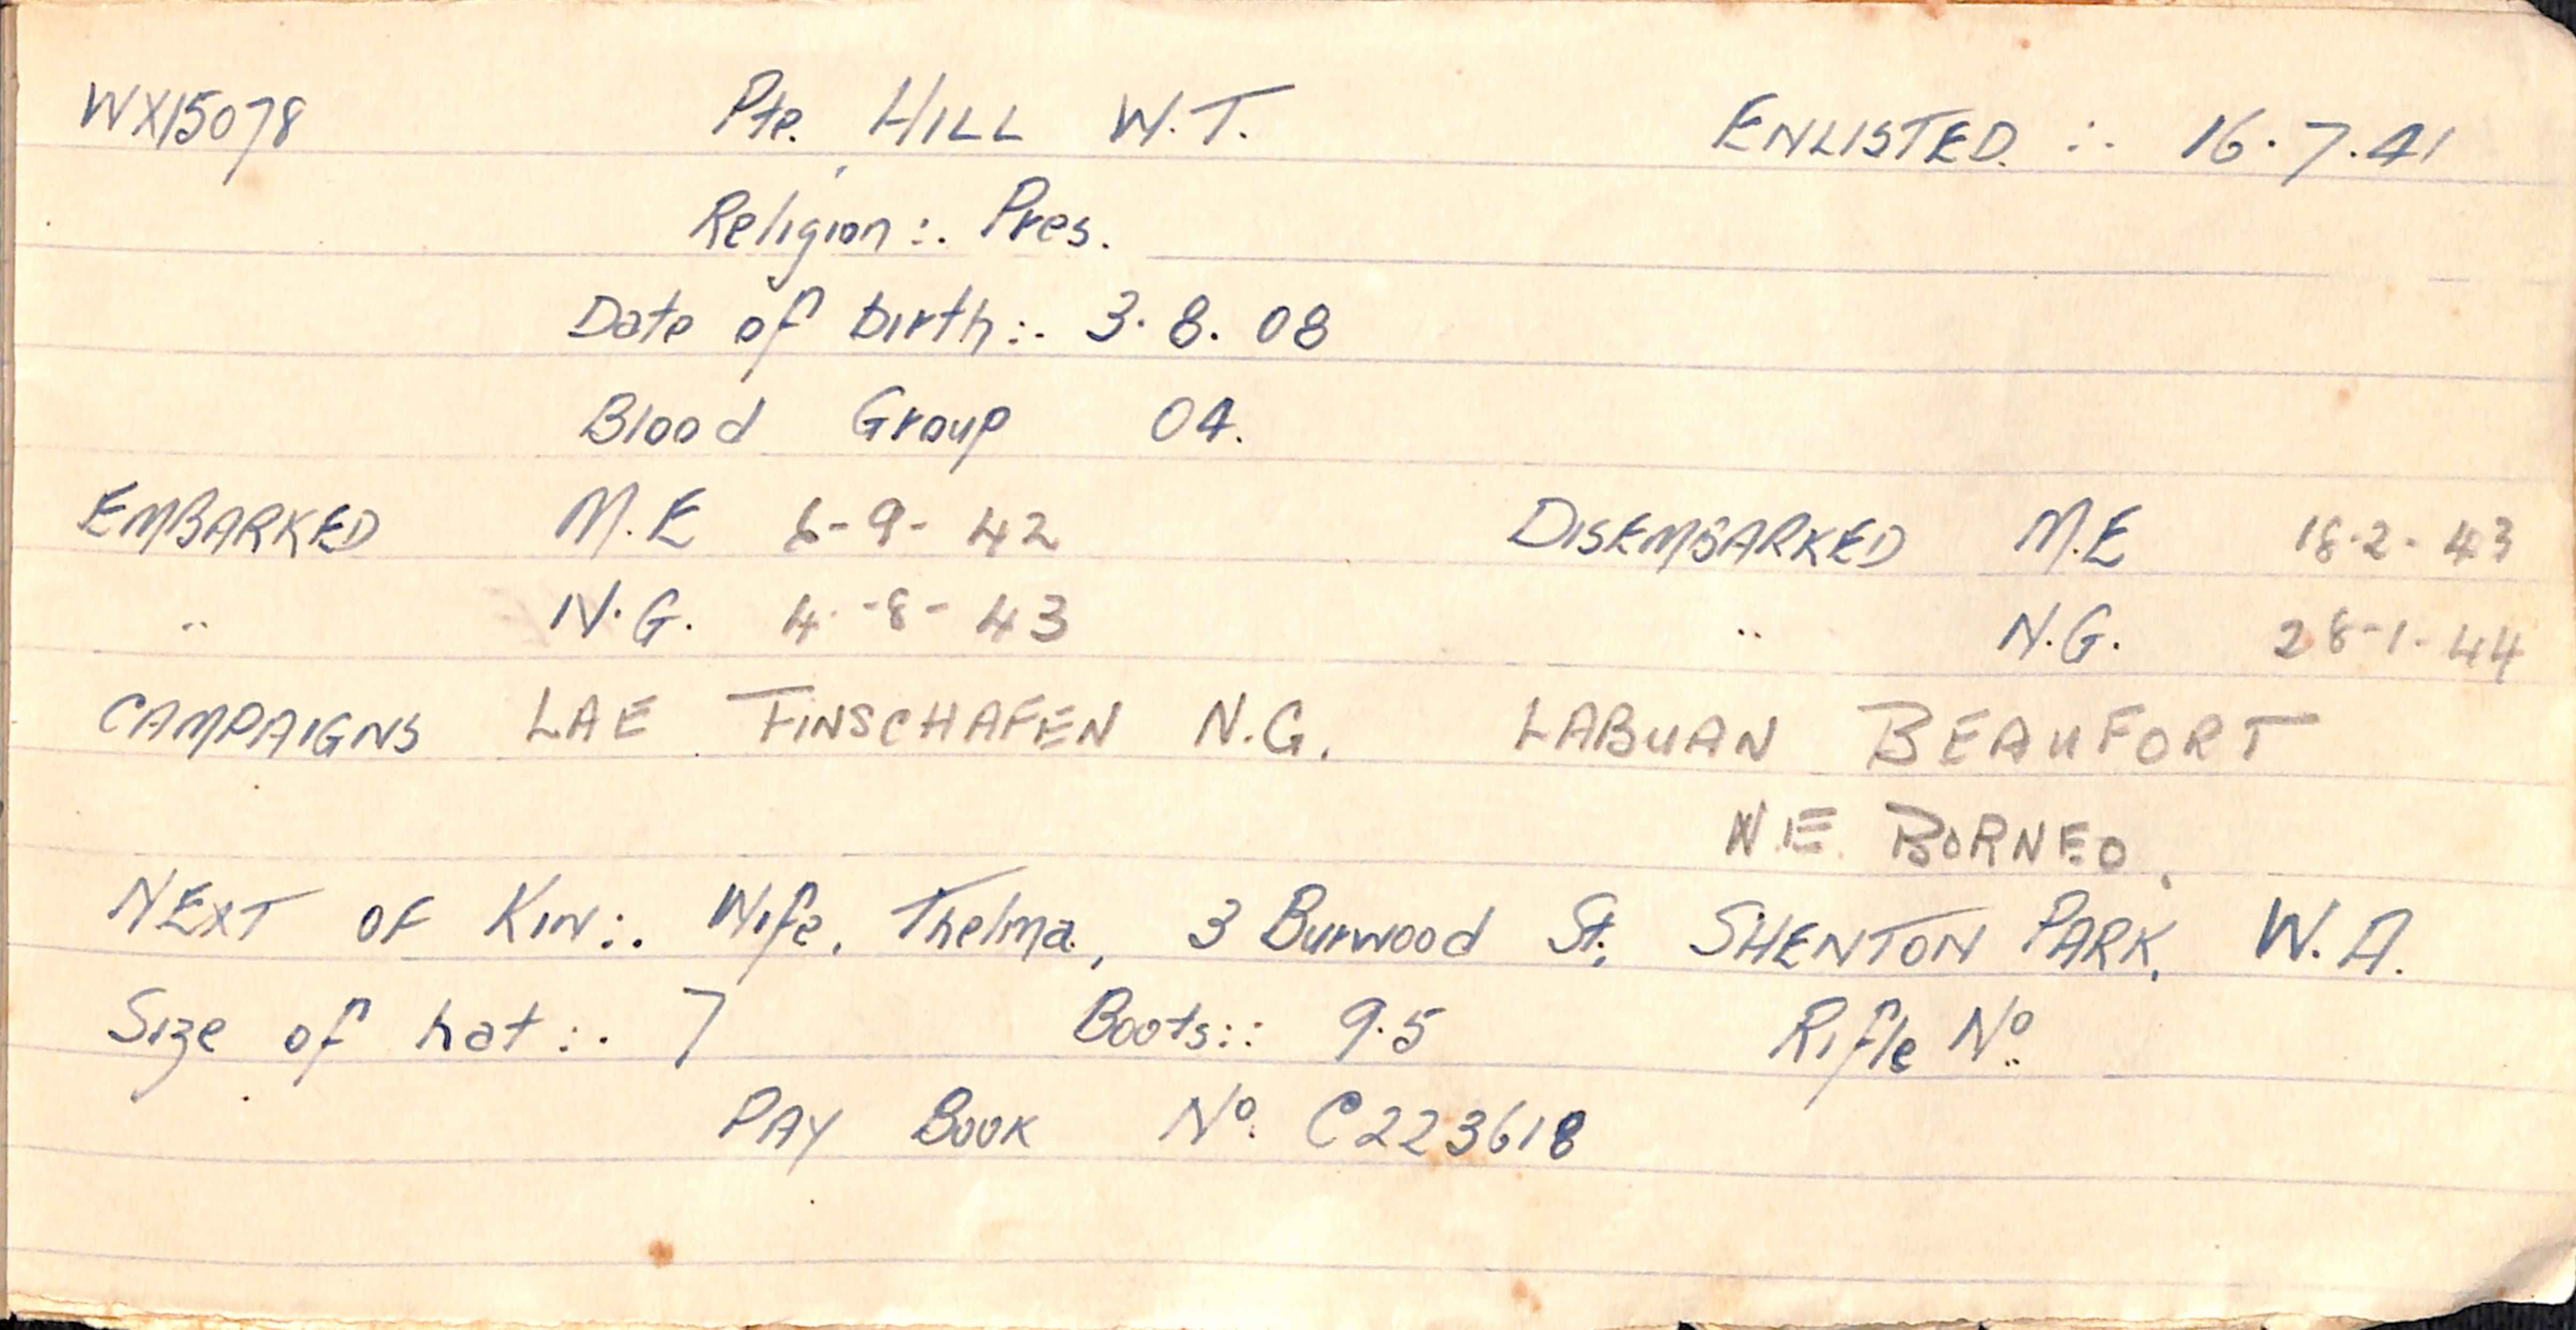 WX15078 Pte. HILL W.T. ENLISTED :. 16.7.41
Religion :. Pres.
Date of birth :. 3.8.08
Blood Group O4.
EMBARKED M.E 6-9-42 DISEMBARKED M.E 18-2-43
" N.G. 4-8-43 " N.G. 28-1-44
CAMPAIGNS LAE FINSCHAFEN N.G. LABUAN BEAUFORT
N.E. BORNEO.
NEXT OF KIN :. Wife, Thelma, 3 Burwood St. SHENTON PARK, W.A.
Size of hat :. 7 Boots :: 9.5 Rifle No.
PAY BOOK No. C223618